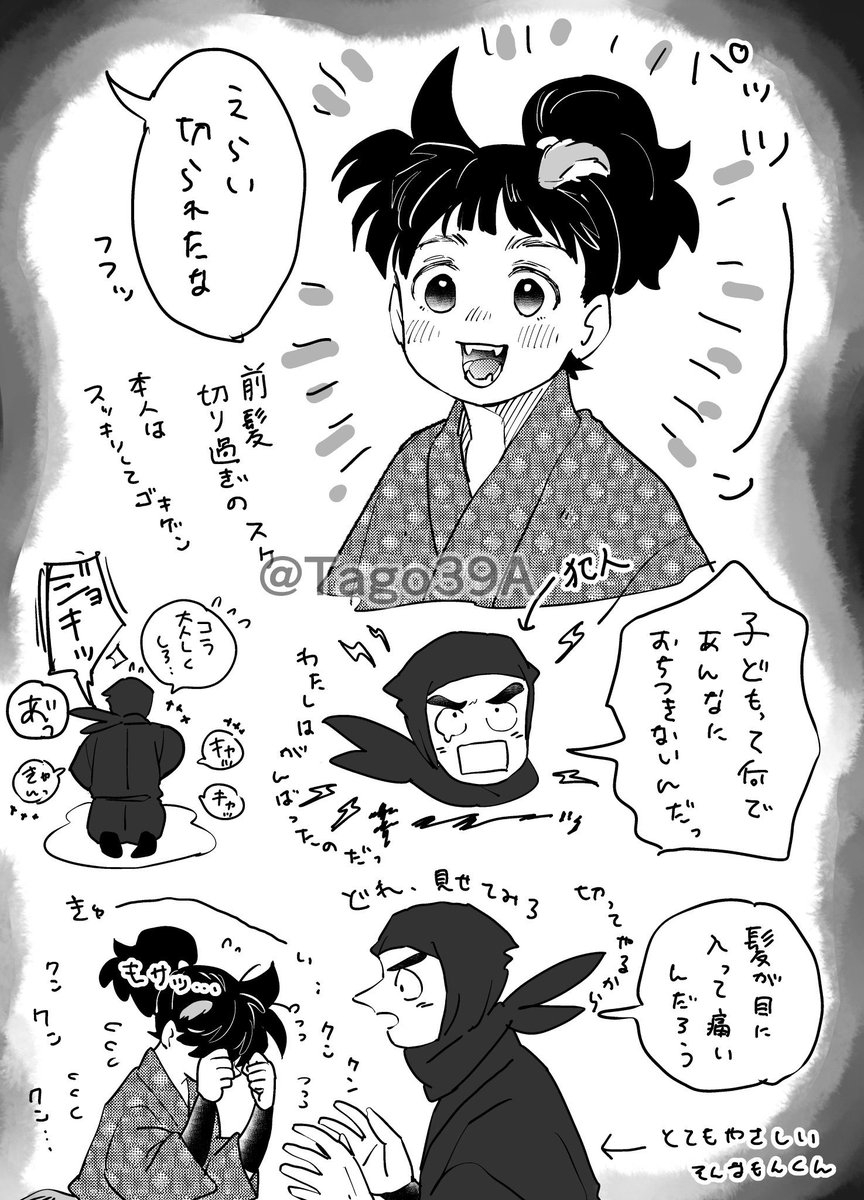 パッツン
えらい
切られたな
フフッ
前髪
切り過ぎの
スケ
本人は
スッキリして
ゴキゲン
@Tago39A
犯人
子どもって何で
あんなに
おちつきないんだっ
わたしはがんばったのだっ
コラ
大人しく
しろ…
ジョキッ
あっ
キャッ
キャッ
きゃんっ
髪が目に
入って痛い
んだろう
切ってやるから
どれ、見せてみろ
きゅーい…
もサッ…
クン
クン
クン
クン
クン…
とてもやさしい
そんなもんくん